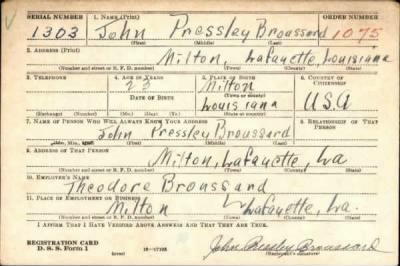 SERIAL NUMBER 1. NAME (Print) ORDER NUMBER
1303 John Pressley Broussard 1075
(First) (Middle) (Last)
2. ADDRESS (Print)
Milton, Lafayette, Louisiana
(Number and street or R. F. D. number) (Town) (County) (State)
3. TELEPHONE 4. AGE IN YEARS 5. PLACE OF BIRTH 6. COUNTRY OF CITIZENSHIP
23 Milton
DATE OF BIRTH (Town or county)
Louisiana U.S.A
(Exchange) (Number) (Mo.) (Day) (Yr.) (State or country)
7. NAME OF PERSON WHO WILL ALWAYS KNOW YOUR ADDRESS 8. RELATIONSHIP OF THAT PERSON
John Pressley Broussard
(Mr., Mrs., Miss) (First) (Middle) (Last)
9. ADDRESS OF THAT PERSON
Milton, Lafayette, La
(Number and street or R. F. D. number) (Town) (County) (State)
10. EMPLOYER'S NAME
Theodore Broussard
11. PLACE OF EMPLOYMENT OR BUSINESS
Milton Lafayette, La.
(Number and street or R. F. D. number) (Town) (County) (State)
I AFFIRM THAT I HAVE VERIFIED ABOVE ANSWERS AND THAT THEY ARE TRUE.
REGISTRATION CARD
D. S. S. Form 1 (over) John Pressley Broussard
(Registrant's signature)